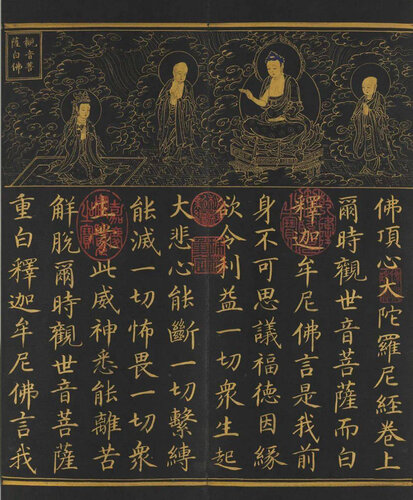 觀音菩
薩白佛
佛頂心大陀羅尼經卷上
爾時觀世音菩薩而白
釋迦牟尼佛言是我前
身不可思議福德因緣
欲令利益一切衆生起
大悲心能斷一切繫縛
能滅一切怖畏一切衆
生蒙此威神悉能離苦
解脫爾時觀世音菩薩
重白釋迦牟尼佛言我